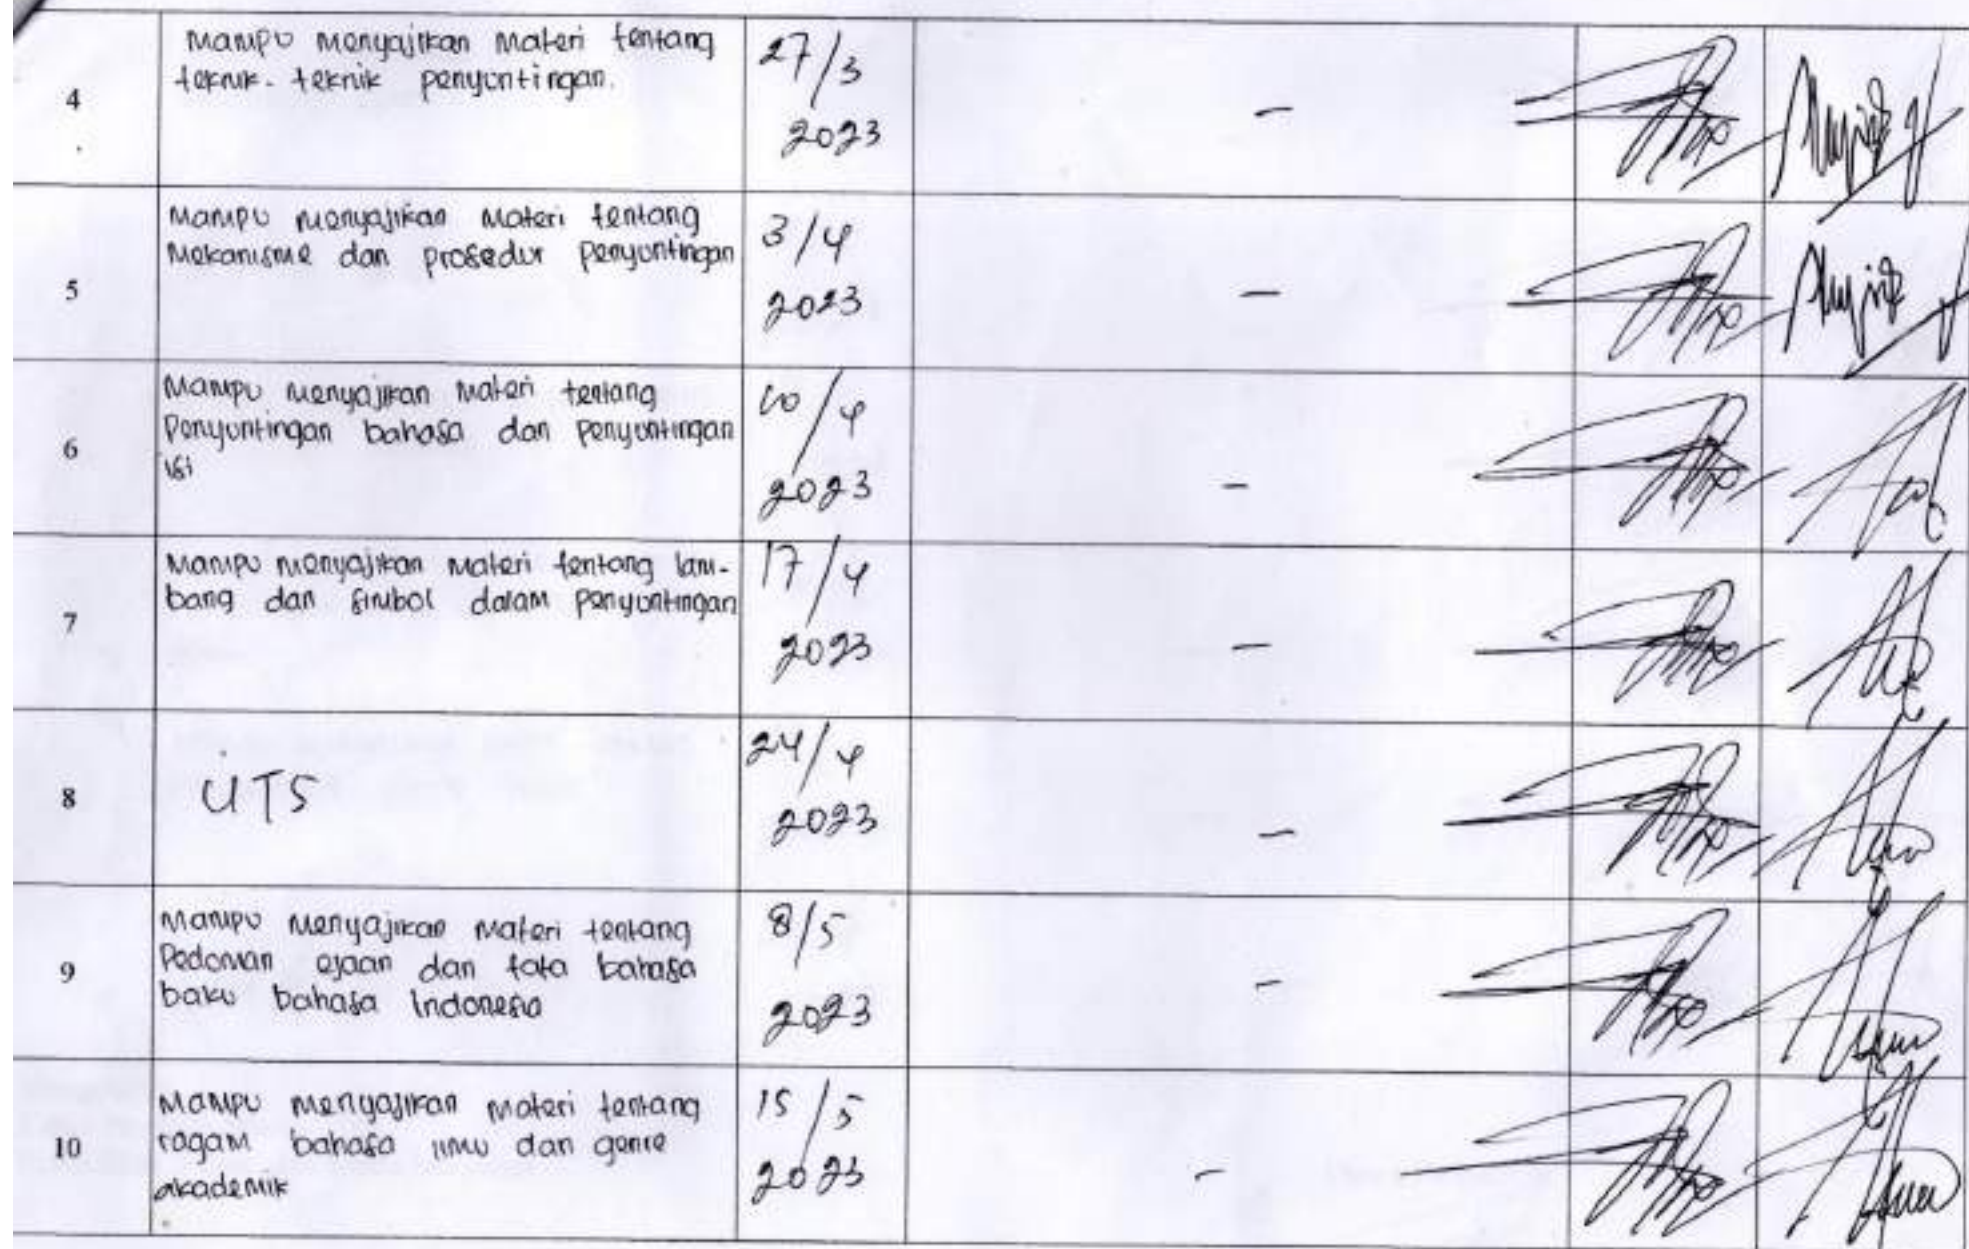 4
Mampu menyajikan materi tentang
teknik-teknik penyuntingan.
27/3
2023
-
5
Mampu menyajikan materi tentang
mekanisme dan prosedur penyuntingan
3/4
2023
-
6
Mampu menyajikan materi tentang
Penyuntingan bahasa dan penyuntingan
isi
10/4
2023
-
7
Mampu menyajikan materi tentang lam-
bang dan simbol dalam penyuntingan
17/4
2023
-
8
UTS
24/4
2023
-
9
Mampu menyajikan materi tentang
Pedoman ejaan dan tata bahasa
baku bahasa Indonesia
8/5
2023
-
10
Mampu menyajikan materi tentang
ragam bahasa ilmu dan genre
akademik
15/5
2023
-